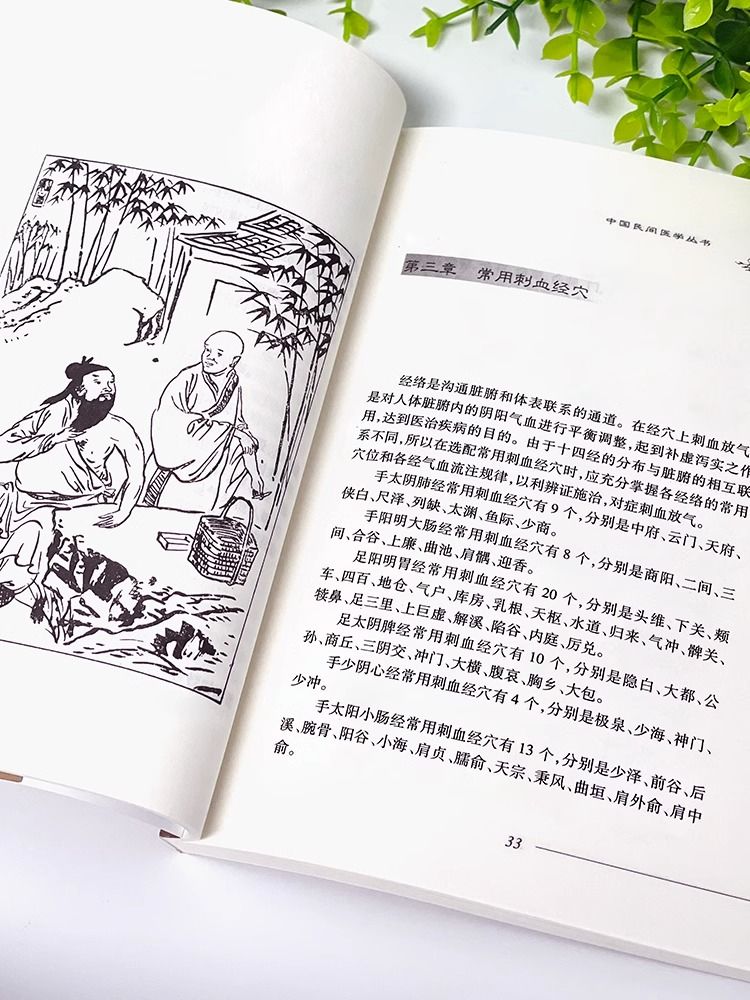 中国民间医学丛书
第三章 常用刺血经穴
经络是沟通脏腑和体表联系的通道。在经穴上刺血放气
是对人体脏腑内的阴阳气血进行平衡调整,起到补虚泻实之作
用,达到医治疾病的目的。由于十四经的分布与脏腑的相互联
系不同,所以在选配常用刺血经穴时,应充分掌握各经络的常用
穴位和各经气血流注规律,以利辨证施治,对症刺血放气。
手太阴肺经常用刺血经穴有 9 个,分别是中府、云门、天府、
侠白、尺泽、列缺、太渊、鱼际、少商。
手阳明大肠经常用刺血经穴有 8 个,分别是商阳、二间、三
间、合谷、上廉、曲池、肩髃、迎香。
足阳明胃经常用刺血经穴有 20 个,分别是头维、下关、颊
车、四百、地仓、气户、库房、乳根、天枢、水道、归来、气冲、髀关、
犊鼻、足三里、上巨虚、解溪、陷谷、内庭、厉兑。
足太阴脾经常用刺血经穴有 10 个,分别是隐白、大都、公
孙、商丘、三阴交、冲门、大横、腹哀、胸乡、大包。
手少阴心经常用刺血经穴有 4 个,分别是极泉、少海、神门、
少冲。
手太阳小肠经常用刺血经穴有 13 个,分别是少泽、前谷、后
溪、腕骨、阳谷、小海、肩贞、臑俞、天宗、秉风、曲垣、肩外俞、肩中
俞。
33